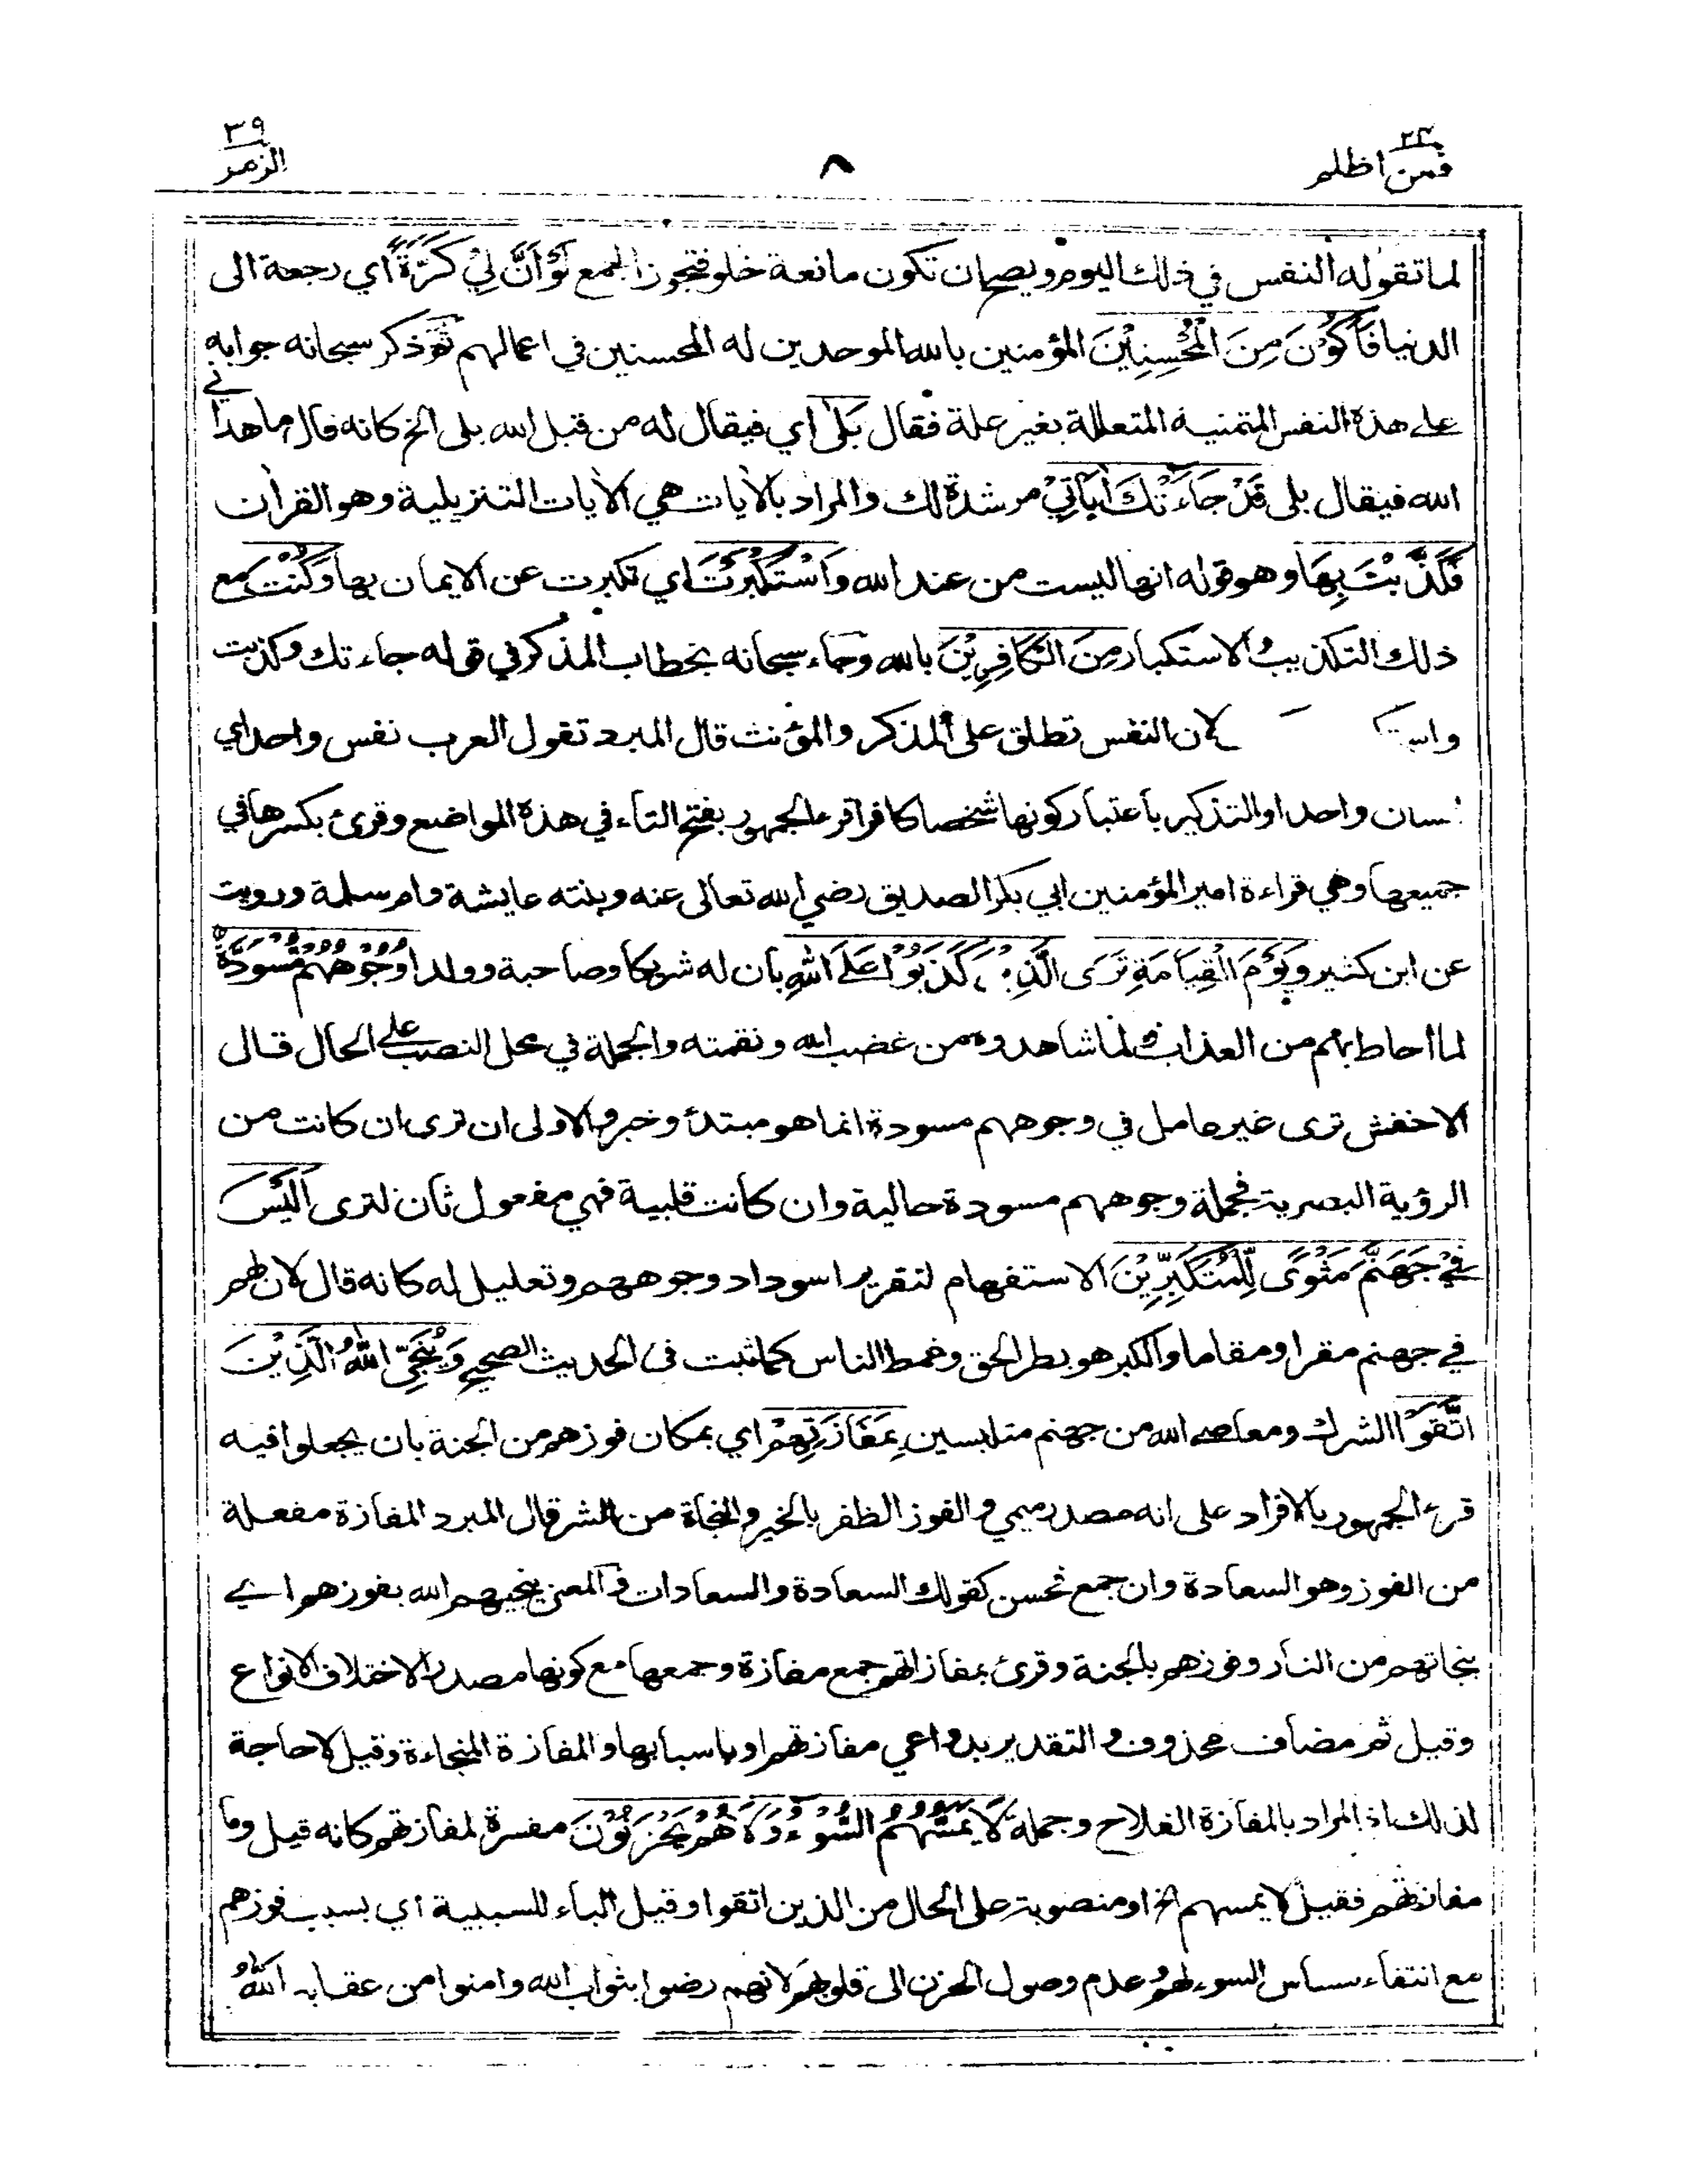 ٢٤
فمن اظلم
٨
٣٩
الزمر
لما تقوله النفس في ذلك اليوم ويصح ان تكون مانعة خلو فتجوز الجمع لَوْ أَنَّ لِيْ كَرَّةً اي رجعة الى
الدنيا فَأَكُوْنَ مِنَ الْمُحْسِنِيْنَ المؤمنين بالله الموحدين له المحسنين في اعمالهم ثم ذكر سبحانه جوابه
على هذه النفس المتمنية المتعللة بغير علة فقال بَلىٰ اي فيقال له من قبل الله بلى الخ كانه قال ما هداني
الله فيقال بلى قَدْ جَاءَتْكَ اٰيَاتِيْ مرشدة لك والمراد بالاٰيات هي الاٰيات التنزيلية وهو القراٰن
فَكَذَّبْتَ بِهَا وهو قوله انها ليست من عند الله وَاسْتَكْبَرْتَ اي تكبرت عن الايمان بها وَكُنْتَ مع
ذلك التكذيب والاستكبار مِنَ الْكَافِرِيْنَ بالله وجاء سبحانه بخطاب المذكر في قوله جاءتك وكذبت
واست لان النفس تطلق على المذكر والمؤنث قال المبرد تقول العرب نفس واحد اي
نسان واحد او التذكير باعتبار كونها شخصا كافرا قرء الجمهور بفتح التاء في هذه المواضع وقرئ بكسرها في
جميعها وهي قراءة امير المؤمنين ابي بكر الصديق رضي الله تعالى عنه وبنته عايشة وام سلمة ورويت
عن ابن كثير وَيَوْمَ الْقِيَامَةِ تَرَى الَّذِيْنَ كَذَبُوْا عَلَى اللهِ بان له شريكا وصاحبة وولدا وُجُوْهُهُمْ مُسْوَدَّةٌ
لما احاط بهم من العذاب ولما شاهدوه من غضب الله ونقمته والجملة في محل النصب على الحال قال
الاخفش ترى غير عامل في وجوههم مسودة انما هو مبتدأ وخبر والاولى ان ترى ان كانت من
الرؤية البصرية فجملة وجوههم مسودة حالية وان كانت قلبية فهي مفعول ثان لترى اَلَيْسَ
فِيْ جَهَنَّمَ مَثْوًى لِّلْمُتَكَبِّرِيْنَ الاستفهام لتقرير اسوداد وجوههم وتعليل له كانه قال لان لهم
في جهنم مقرا ومقاما والكبر هو بطر الحق وغمط الناس كما ثبت فى الحديث الصحيح وَيُنَجِّى اللهُ الَّذِيْنَ
اتَّقَوْا الشرك ومعاصي الله من جهنم متلبسين بِمَفَازَتِهِمْ اي بمكان فوزهم من الجنة بان يجعلوا فيه
قرء الجمهور بالافراد على انه مصدر ميمي والفوز الظفر بالخير والنجاة من الشر قال المبرد المفازة مفعلة
من الفوز وهو السعادة وان جمع فحسن كقولك السعادة والسعادات والمعنى ينجيهم الله بفوزهم اي
بنجاتهم من النار وفوزهم بالجنة وقرئ بمفازاتهم جمع مفازة وجمعها مع كونها مصدرا لاختلاف الانواع
وقيل ثم مضاف محذوف والتقدير بدواعي مفازتهم او باسبابها والمفازة المنجاءة وقيل لا حاجة
لذلك اذ المراد بالمفازة الفلاح وجملة لَا يَمَسُّهُمُ السُّوْءُ وَلَا هُمْ يَحْزَنُوْنَ مفسرة لمفازتهم كانه قيل وما
مفازتهم فقيل لا يمسهم الخ او منصوبة على الحال من الذين اتقوا وقيل الباء للسببية اي بسبب فوزهم
مع انتفاء مساس السوء لهم وعدم وصول الحزن الى قلوبهم لانهم رضوا بثواب الله وامنوا من عقابه اَللهُ